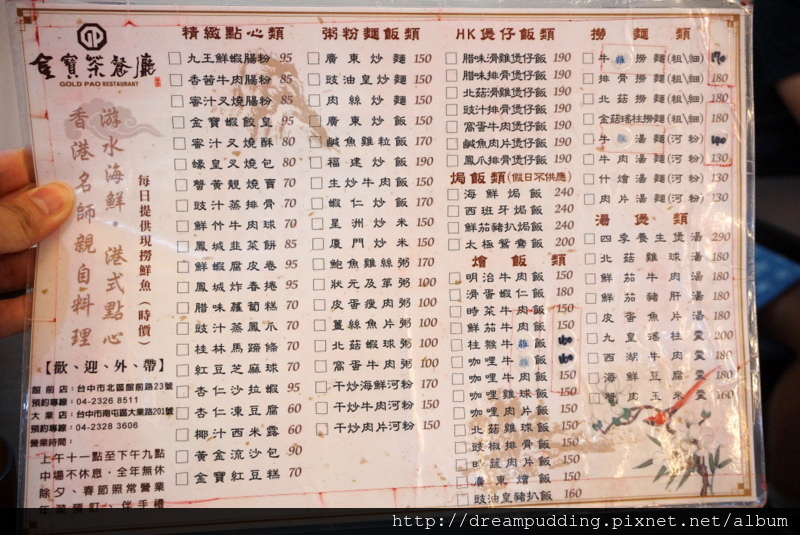 金寶茶餐廳
GOLD PAO RESTAURANT
游水海鮮‧港式點心
香港名師親自料理
每日提供現撈鮮魚（時價）
【歡、迎、外、帶】
館前店：台中市北區館前路23號
預約專線：04-2326 8511
大業店：台中市南屯區大業路201號
預約專線：04-2328 3606
營業時間：
上午十一點至下午九點
中場不休息‧全年無休
除夕、春節照常營業
年菜預訂、伴手禮
精緻點心類
九王鮮蝦腸粉 95
香茜牛肉腸粉 85
蜜汁叉燒腸粉 85
金寶蝦餃皇 95
蜜汁叉燒酥 80
蠔皇叉燒包 80
蟹黃靚燒賣 70
豉汁蒸排骨 70
鮮竹牛肉球 70
鳳城韭菜餅 85
鮮蝦腐皮卷 95
鳳城炸春捲 95
腊味蘿蔔糕 70
豉汁蒸鳳爪 70
桂林馬蹄條 70
紅豆芝麻球 70
杏仁沙拉蝦 95
杏仁凍豆腐 60
椰汁西米露 60
黃金流沙包 90
金寶紅豆糕 70
粥粉麵飯類
廣東炒麵 150
豉油皇炒麵 150
肉絲炒麵 150
廣東炒飯 150
鹹魚雞粒飯 170
福建炒飯 190
生炒牛肉飯 150
蝦仁炒飯 170
星洲炒米 150
廈門炒米 150
鮑魚雞絲粥 170
狀元及第粥 100
皮蛋瘦肉粥 100
薑絲魚片粥 100
北菇蝦球粥 100
窩蛋牛肉粥 100
干炒海鮮河粉 170
干炒牛肉河粉 150
干炒肉片河粉 150
HK煲仔飯類
腊味滑雞煲仔飯 190
腊味排骨煲仔飯 190
北菇滑雞煲仔飯 190
豉汁排骨煲仔飯 190
窩蛋牛肉煲仔飯 190
鹹魚肉片煲仔飯 190
鳳爪排骨煲仔飯 190
焗飯類(假日不供應)
海鮮焗飯 240
西班牙焗飯 240
鮮茄豬扒焗飯 240
太極鴛鴦飯 200
燴飯類
明治牛肉飯 150
滑蛋蝦仁飯 180
時菜牛肉飯 150
鮮茄牛肉飯 150
桂猴牛飯
咖哩牛飯
咖哩牛肉飯 150
咖哩雞球飯 150
北菇雞球飯 150
豉椒排骨飯 150
肉片飯 150
廣東燴飯 150
豉油皇豬扒飯 160
撈麵類
牛撈麵(粗細)
排骨撈麵(粗細) 180
北菇撈麵(粗細) 180
金菇瑤柱撈麵(粗細) 180
牛湯麵(河粉)
牛肉湯麵(河粉) 130
什燴湯麵(河粉) 130
肉片湯麵(河粉) 130
湯煲類
四季養生煲湯 290
北菇雞球湯 180
鮮茄牛肉湯 180
鮮茄豬肝湯 180
皮蛋魚片湯 180
九皇瑤柱羹 200
西湖牛肉羹 180
海鮮豆腐羹 180
蟹肉玉米羹 160
http://dreampudding.pixnet.net/album